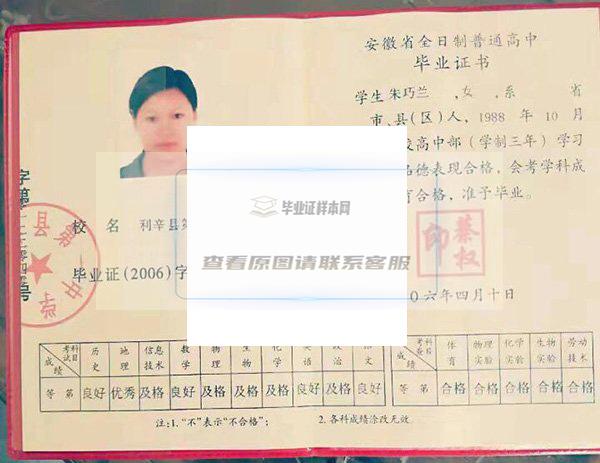 安徽省全日制普通高中
毕业证书
学生 朱巧兰 ,女 ,系 省
市、县(区)人, 1988 年 10 月
校高中部(学制三年)学习
德表现合格,会考学科成
合格,准予毕业。
校 名 利辛县
毕业证(2006)字
字第
号
县第一中学
蔡权印
〇六年四月十日
毕业证样本网
查看原图请联系客服
考试科目 历史 地理 信息技术 数学 物理 生物 化学 英语 政治 语文
成绩
等 第 良好 优秀 及格 良好 及格 及格 及格 良好 及格 良好
考查科目 体育 物理实验 化学实验 生物实验 劳动技术
成绩
等 第 合格 合格 合格 合格 合格
注:1."不"表示"不合格"; 2.各科成绩涂改无效.